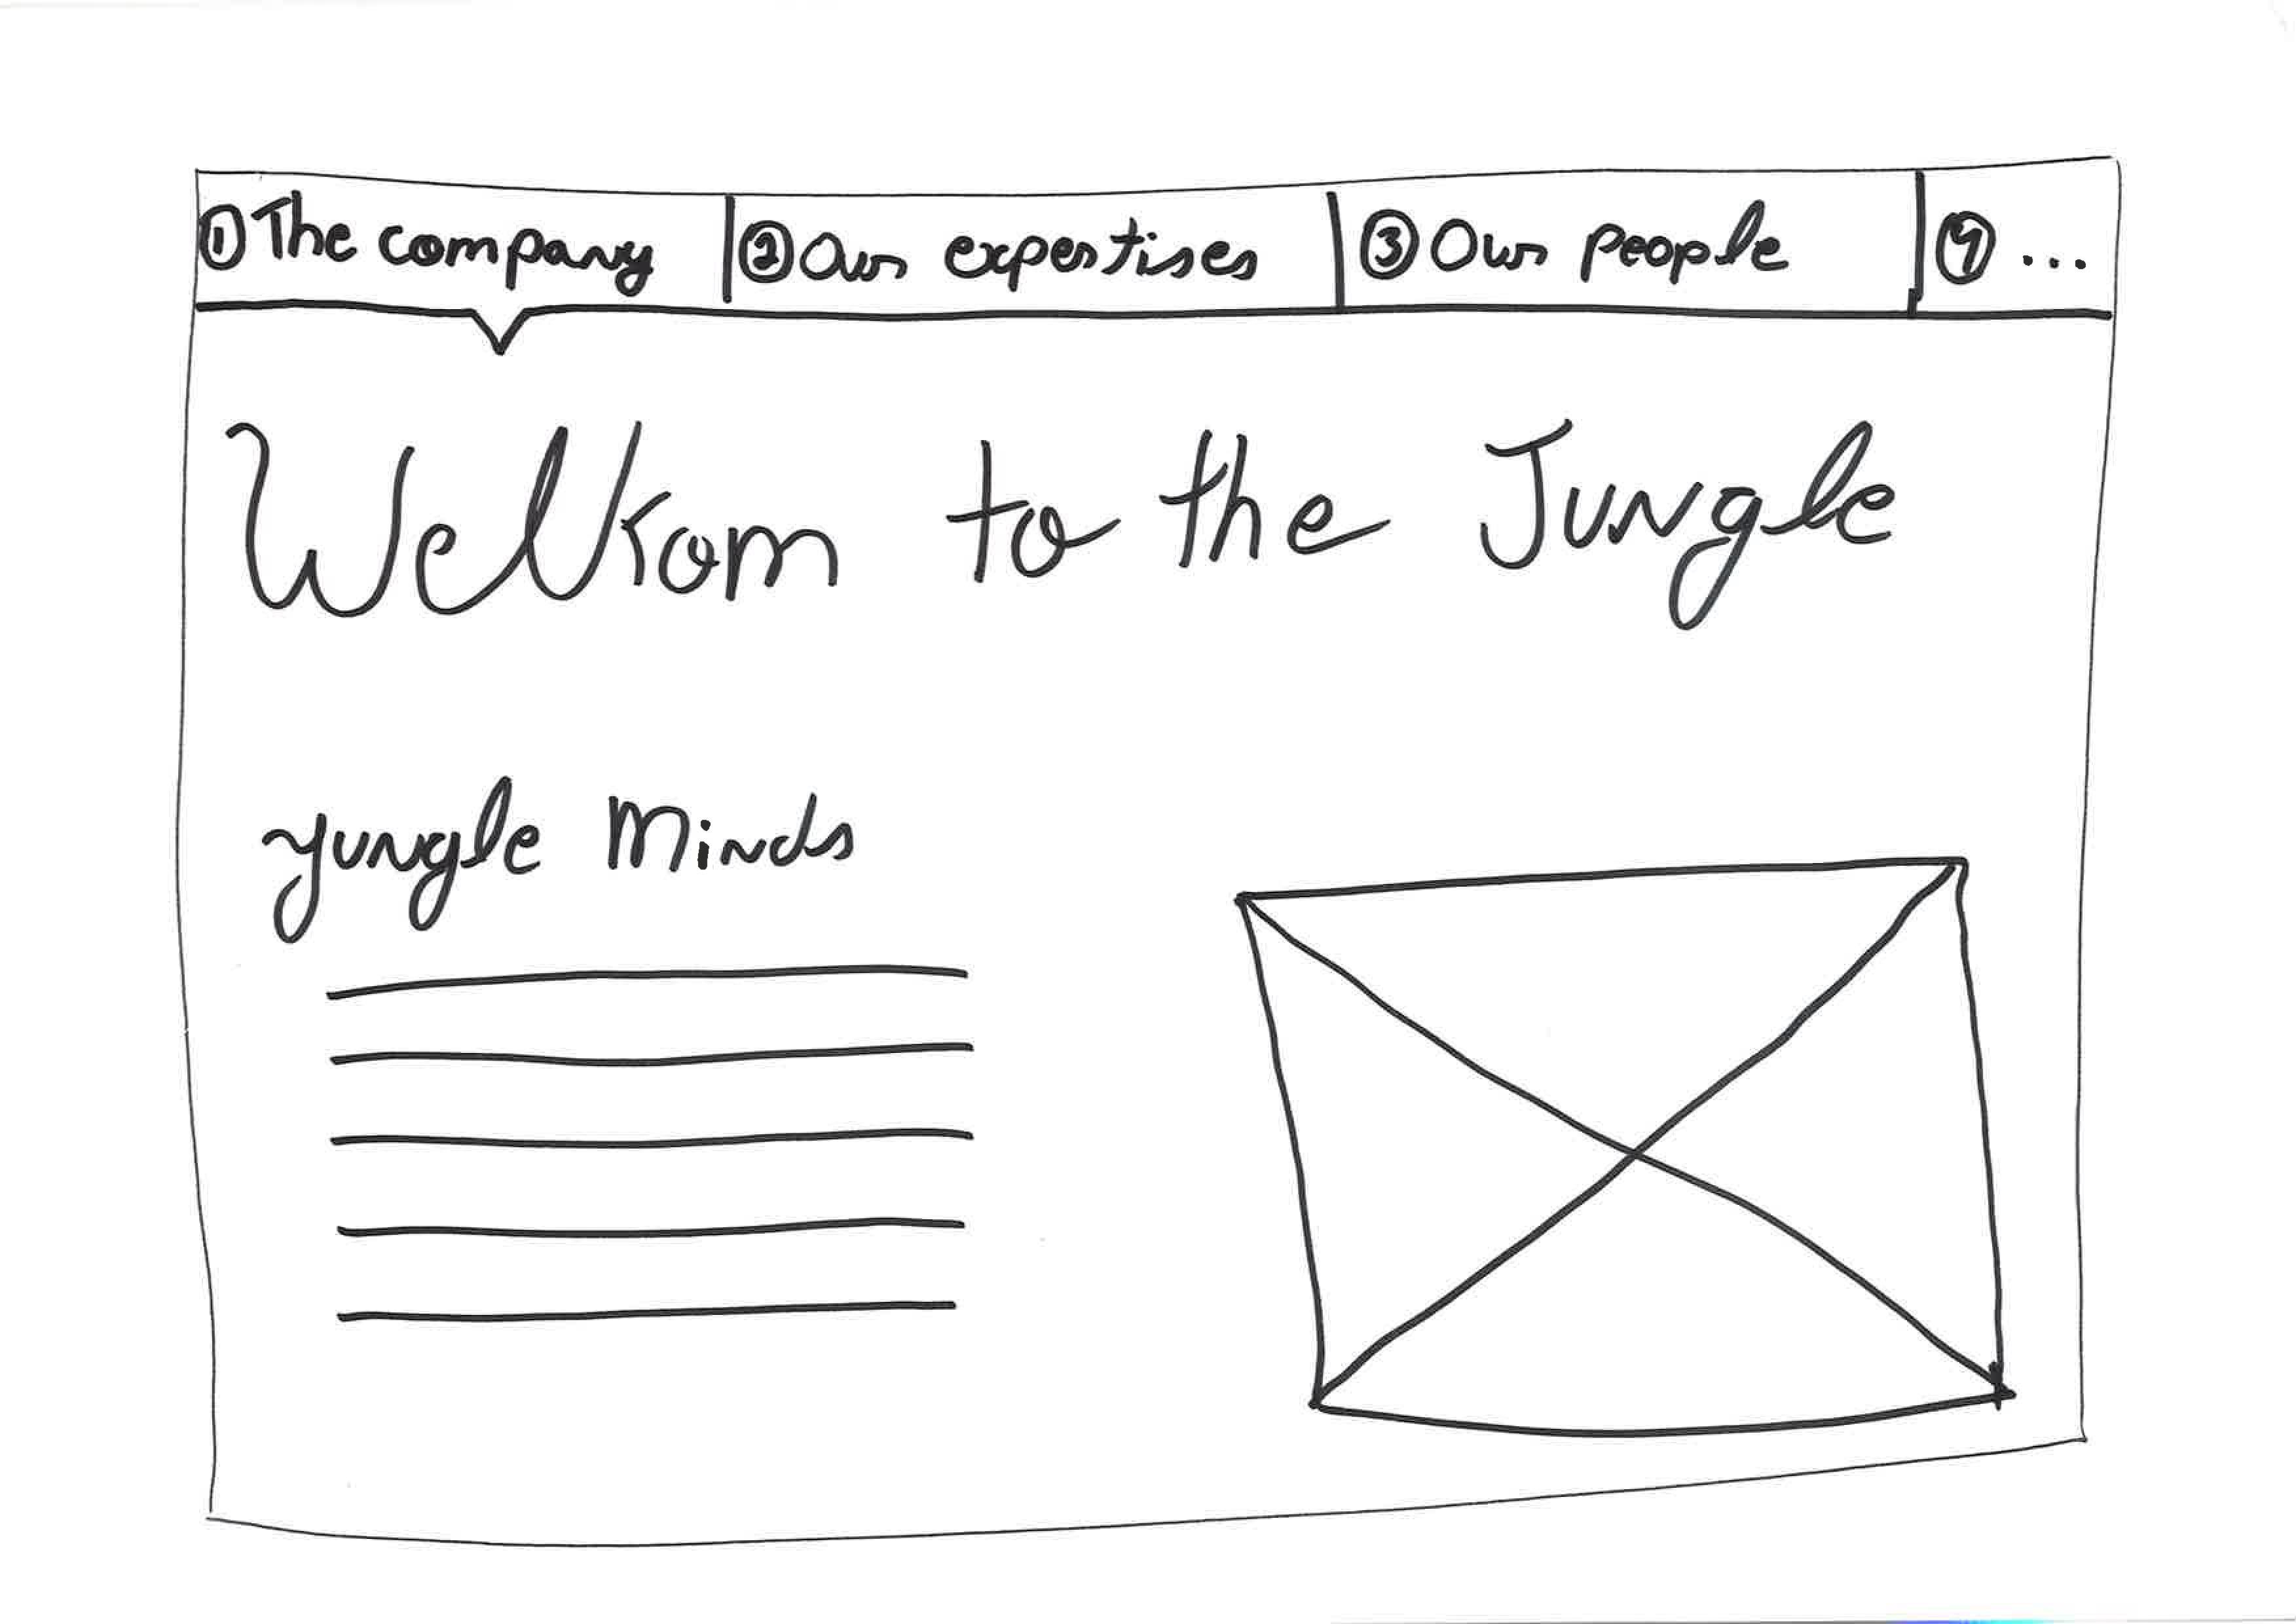 ① The company ② Our expertises ③ Our people ④ ...
Welkom to the Jungle
Jungle Minds